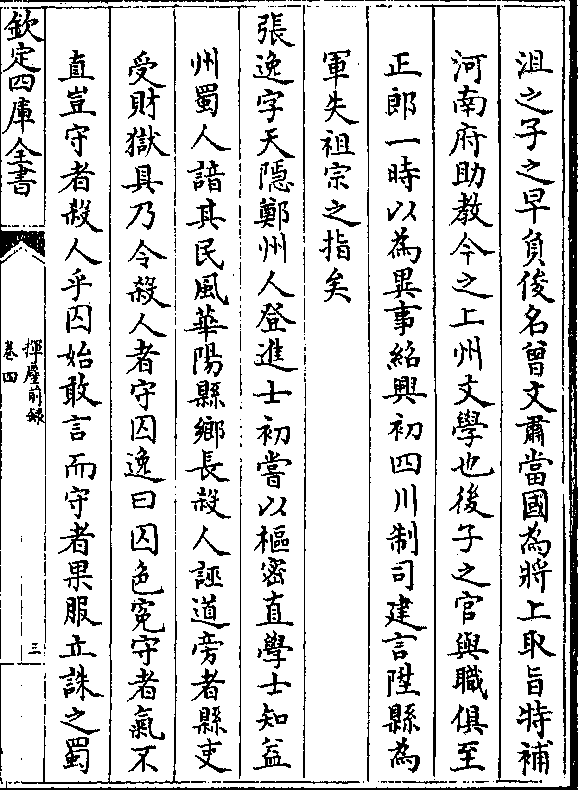 沮之子之早負俊名曾文肅當國為將上取旨特補
河南府助教今之上州文學也後子之官與職俱至
正郎一時以為異事紹興初四川制司建言陞縣為
軍失祖宗之指矣
張逸字天隱鄭州人登進士初嘗以樞密直學士知益
州蜀人諳其民風華陽縣鄉長殺人誣道旁者縣吏
受財獄具乃令殺人者守囚逸曰囚色寃守者氣不
直豈守者殺人乎囚始敢言而守者果服立誅之蜀
欽定四庫全書
揮麈前録
卷四
三